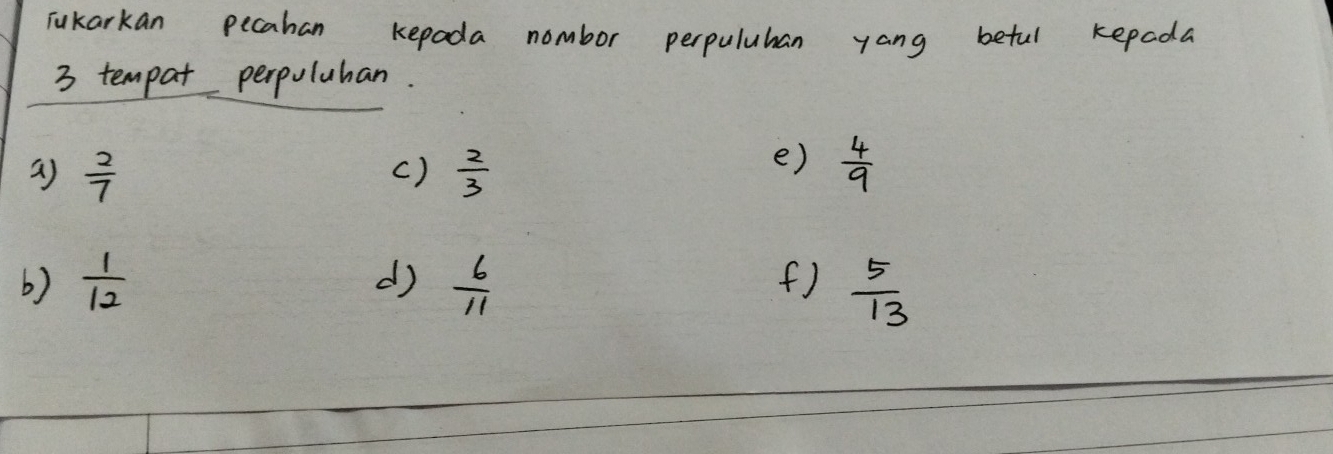 Tukarkan pecahan kepada nombor perpuluhan yang betul kepada
3 tempat perpuluhan.
a) 2/7 c) 2/3 e) 4/9
b) 1/12 d) 6/11 f) 5/13